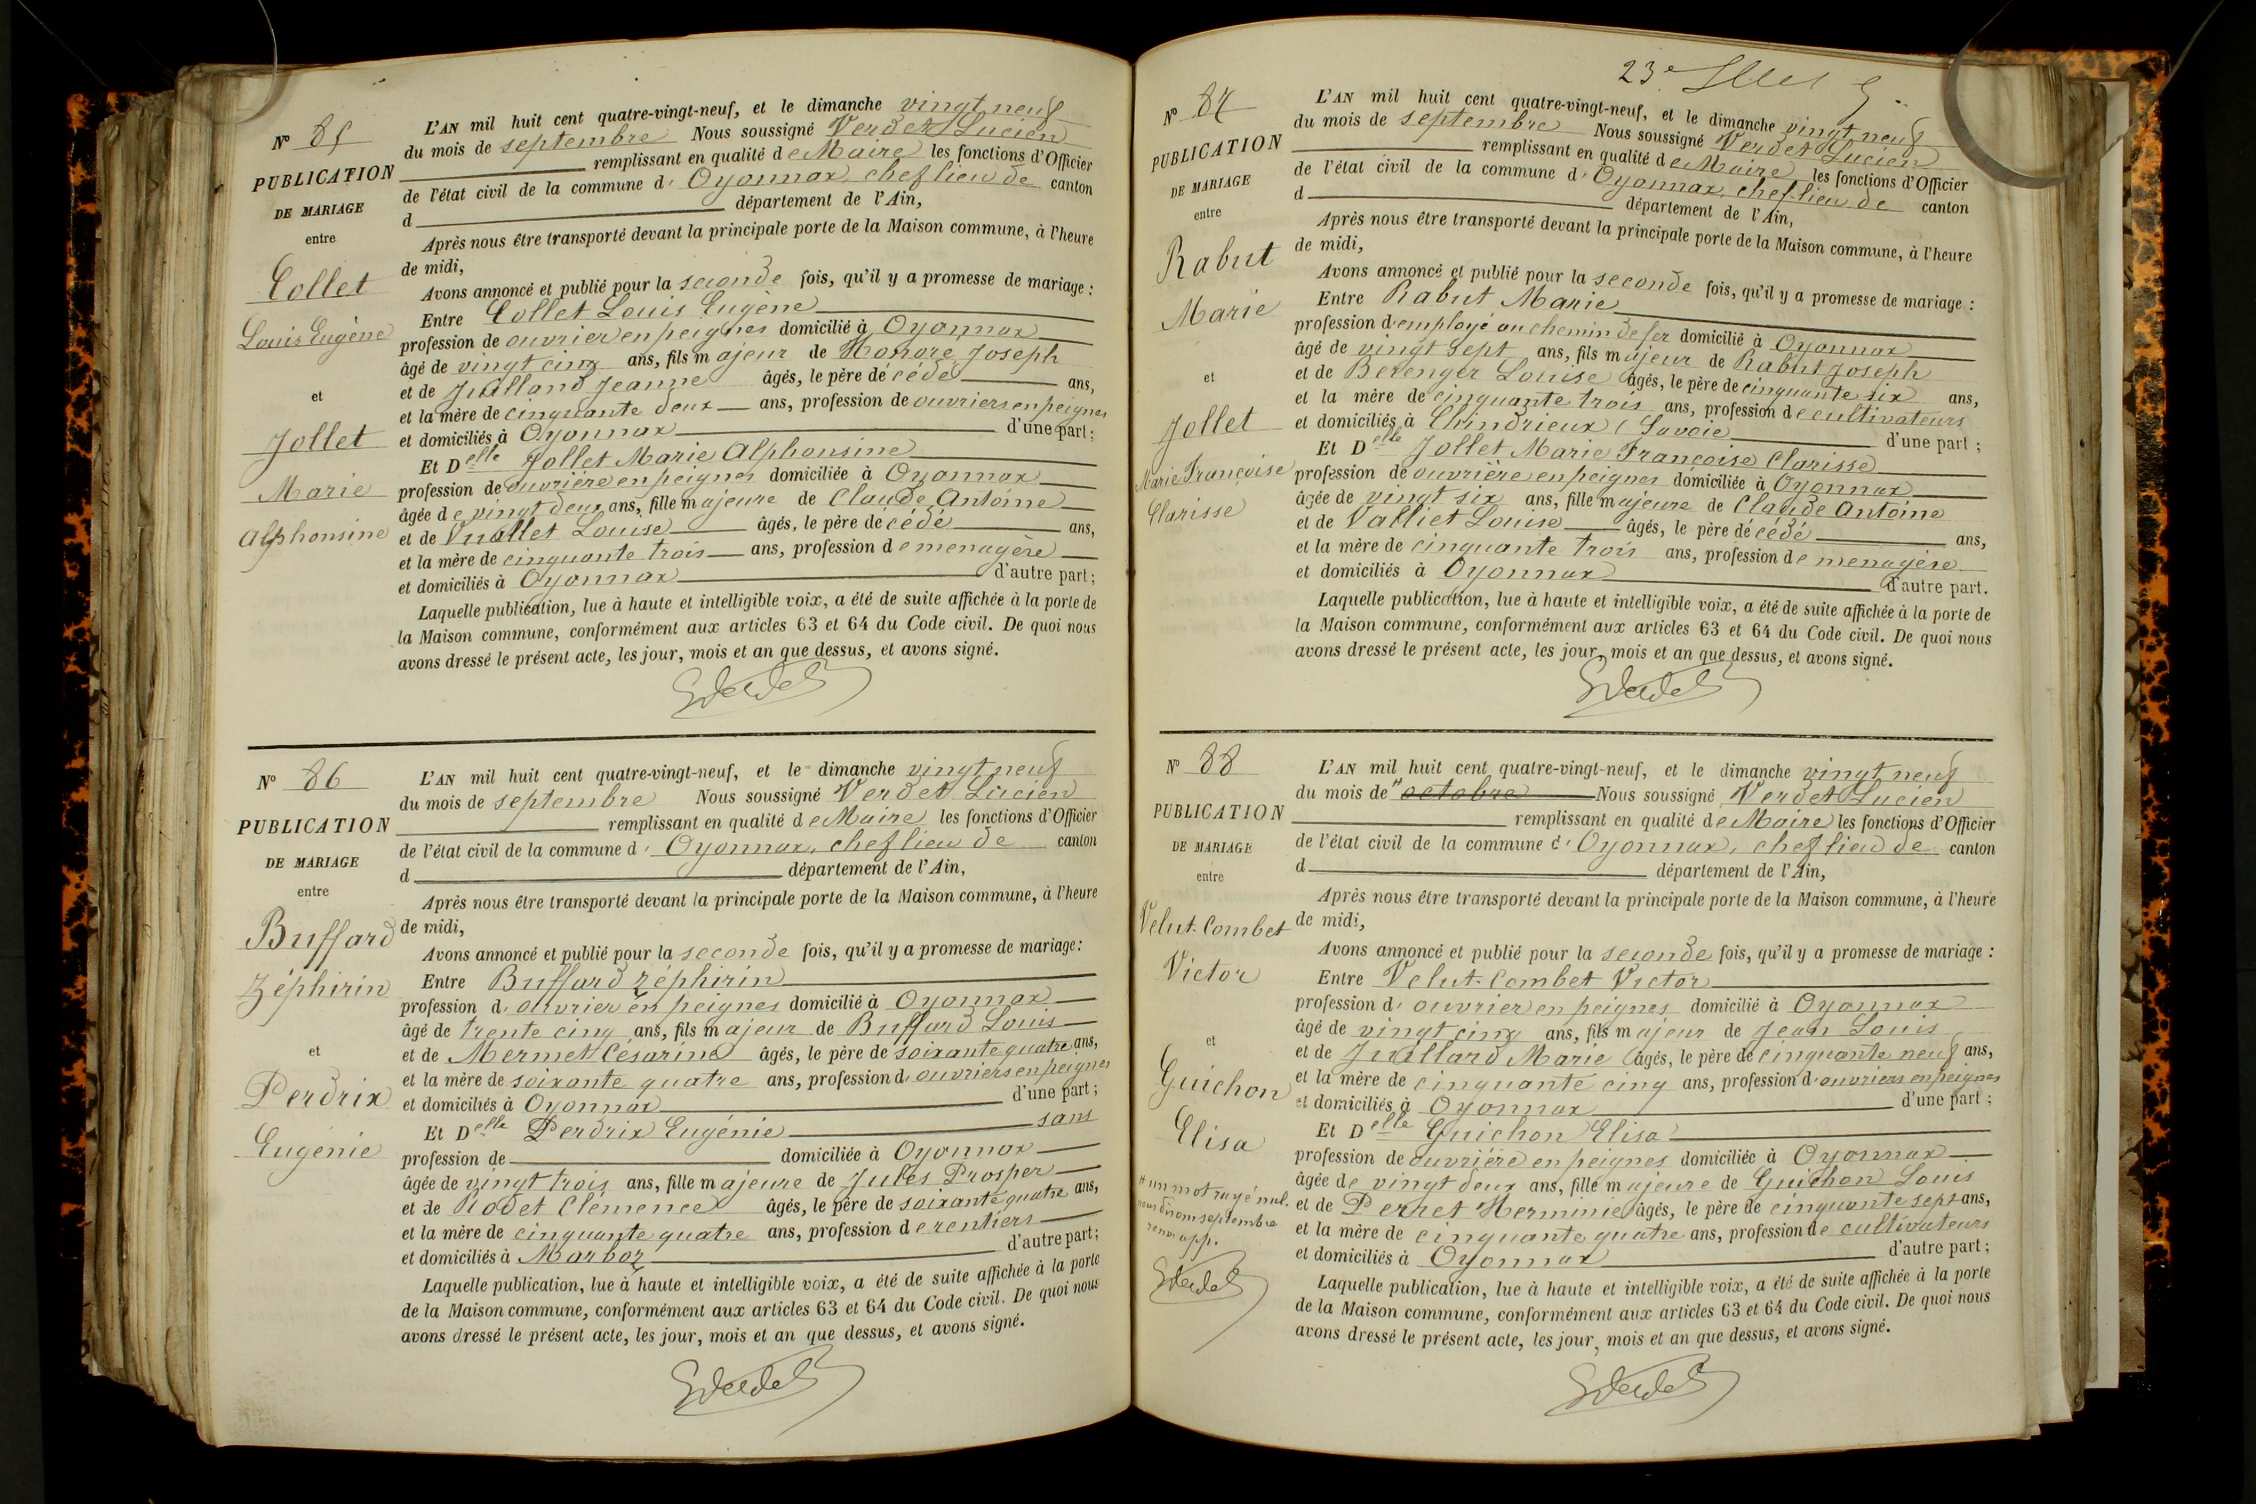 Nº 85
PUBLICATION
DE MARIAGE
entre
Collet
Louis Eugène
et
Jollet
Marie
Alphonsine
L'AN mil huit cent quatre-vingt-neuf, et le dimanche vingt neuf
du mois de septembre Nous soussigné Verdet Lucien
remplissant en qualité de Maire les fonctions d'Officier
de l'état civil de la commune d'Oyonnax, chef lieu de canton
d département de l'Ain,
Après nous être transporté devant la principale porte de la Maison commune, à l'heure
de midi,
Avons annoncé et publié pour la seconde fois, qu'il y a promesse de mariage :
Entre Collet Louis Eugène
profession de ouvrier en peignes domicilié à Oyonnax
âgé de vingt cinq ans, fils majeur de Honoré Joseph
et de Juilland Jeanne âgés, le père décédé ans,
et la mère de cinquante deux ans, profession de ouvriers en peignes
et domiciliés à Oyonnax d'une part ;
Et Delle Jollet Marie Alphonsine
profession de ouvrière en peignes domiciliée à Oyonnax
âgée de vingt deux ans, fille majeure de Claude Antoine
et de Vuallet Louise âgés, le père décédé ans,
et la mère de cinquante trois ans, profession de menagère
et domiciliés à Oyonnax d'autre part ;
Laquelle publication, lue à haute et intelligible voix, a été de suite affichée à la porte de
la Maison commune, conformément aux articles 63 et 64 du Code civil. De quoi nous
avons dressé le présent acte, les jour, mois et an que dessus, et avons signé.
Verdet
Nº 86
PUBLICATION
DE MARIAGE
entre
Buffard
Zéphirin
et
Perdrix
Eugénie
L'AN mil huit cent quatre-vingt-neuf, et le dimanche vingt neuf
du mois de septembre Nous soussigné Verdet Lucien
remplissant en qualité de Maire les fonctions d'Officier
de l'état civil de la commune d'Oyonnax, chef lieu de canton
d département de l'Ain,
Après nous être transporté devant la principale porte de la Maison commune, à l'heure
de midi,
Avons annoncé et publié pour la seconde fois, qu'il y a promesse de mariage :
Entre Buffard Zéphirin
profession d'ouvrier en peignes domicilié à Oyonnax
âgé de trente cinq ans, fils majeur de Buffard Louis
et de Mermet Césarine âgés, le père de soixante quatre ans,
et la mère de soixante quatre ans, profession d'ouvriers en peignes
et domiciliés à Oyonnax d'une part ;
Et Delle Perdrix Eugénie sans
profession de domiciliée à Oyonnax
âgée de vingt trois ans, fille majeure de Jules Prosper
et de Rodet Clémence âgés, le père de soixante quatre ans,
et la mère de cinquante quatre ans, profession de rentiers
et domiciliés à Marboz d'autre part ;
Laquelle publication, lue à haute et intelligible voix, a été de suite affichée à la porte
de la Maison commune, conformément aux articles 63 et 64 du Code civil. De quoi nous
avons dressé le présent acte, les jour, mois et an que dessus, et avons signé.
Verdet
23e
Nº 87
PUBLICATION
DE MARIAGE
entre
Rabut
Marie
et
Jollet
Marie Françoise
Clarisse
L'AN mil huit cent quatre-vingt-neuf, et le dimanche vingt neuf
du mois de septembre Nous soussigné Verdet Lucien
remplissant en qualité de Maire les fonctions d'Officier
de l'état civil de la commune d'Oyonnax, chef lieu de canton
d département de l'Ain,
Après nous être transporté devant la principale porte de la Maison commune, à l'heure
de midi,
Avons annoncé et publié pour la seconde fois, qu'il y a promesse de mariage :
Entre Rabut Marie
profession d'employé au chemin de fer domicilié à Oyonnax
âgé de vingt sept ans, fils majeur de Rabut Joseph
et de Berenger Louise âgés, le père de cinquante six ans,
et la mère de cinquante trois ans, profession de cultivateurs
et domiciliés à Chindrieux (Savoie d'une part ;
Et Delle Jollet Marie Françoise Clarisse
profession de ouvrière en peignes domiciliée à Oyonnax
âgée de vingt six ans, fille majeure de Claude Antoine
et de Valliet Louise âgés, le père décédé ans,
et la mère de cinquante trois ans, profession de menagère
et domiciliés à Oyonnax d'autre part.
Laquelle publication, lue à haute et intelligible voix, a été de suite affichée à la porte de
la Maison commune, conformément aux articles 63 et 64 du Code civil. De quoi nous
avons dressé le présent acte, les jour, mois et an que dessus, et avons signé.
Verdet
Nº 88
PUBLICATION
DE MARIAGE
entre
Velut-Combet
Victor
et
Guichon
Elisa
# un mot rayé nul.
nous disons septembre
renv. app.
Verdet
L'AN mil huit cent quatre-vingt-neuf, et le dimanche vingt neuf
du mois de # octobre Nous soussigné Verdet Lucien
remplissant en qualité de Maire les fonctions d'Officier
de l'état civil de la commune d'Oyonnax, chef lieu de canton
d département de l'Ain,
Après nous être transporté devant la principale porte de la Maison commune, à l'heure
de midi,
Avons annoncé et publié pour la seconde fois, qu'il y a promesse de mariage :
Entre Velut-Combet Victor
profession d'ouvrier en peignes domicilié à Oyonnax
âgé de vingt cinq ans, fils majeur de Jean Louis
et de Juillard Marie âgés, le père de cinquante neuf ans,
et la mère de cinquante cinq ans, profession d'ouvriers en peignes
et domiciliés à Oyonnax d'une part ;
Et Delle Guichon Elisa
profession de ouvrière en peignes domiciliée à Oyonnax
âgée de vingt deux ans, fille majeure de Guichon Louis
et de Pernet Herminie âgés, le père de cinquante sept ans,
et la mère de cinquante quatre ans, profession de cultivateurs
et domiciliés à Oyonnax d'autre part ;
Laquelle publication, lue à haute et intelligible voix, a été de suite affichée à la porte
de la Maison commune, conformément aux articles 63 et 64 du Code civil. De quoi nous
avons dressé le présent acte, les jour, mois et an que dessus, et avons signé.
Verdet